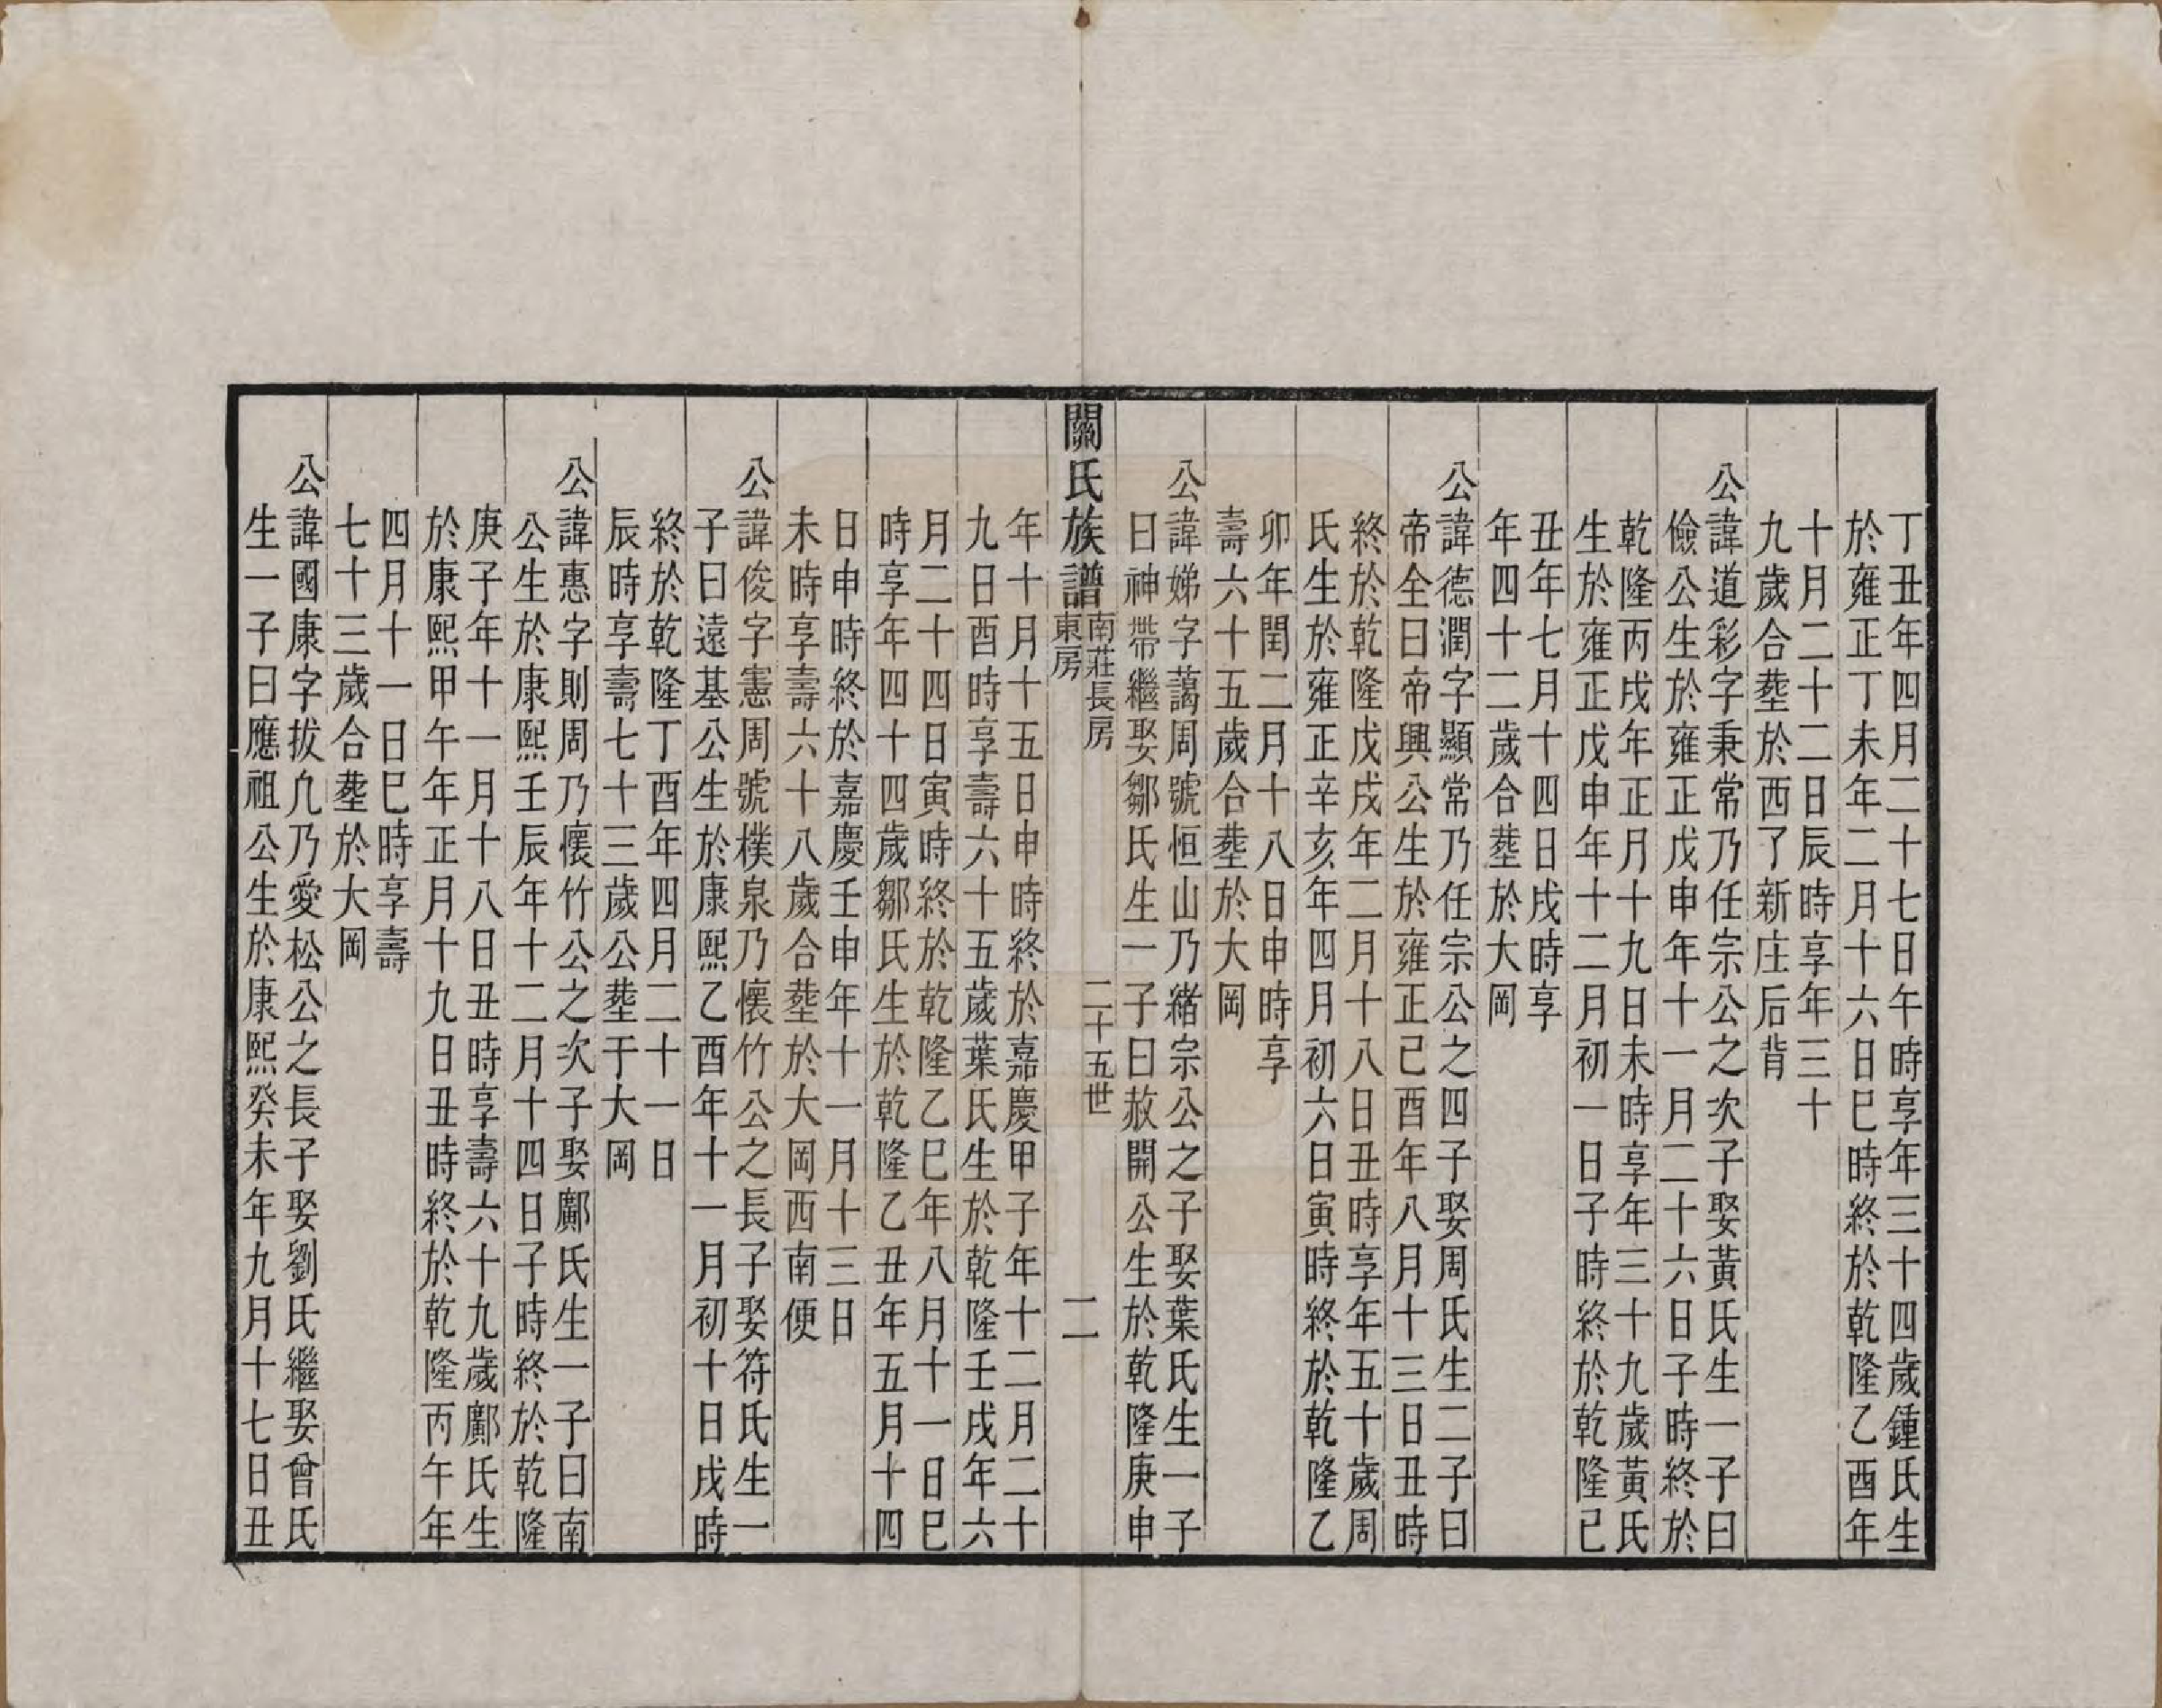 丁丑年四月二十七日午時享年三十四歲鍾氏生
於雍正丁未年二月十六日巳時終於乾隆乙酉年
十月二十二日辰時享年三十
九歲合塟於西了新庄后背
公諱道彩字秉常乃任宗公之次子娶黃氏生一子曰
儉公生於雍正戊申年十一月二十六日子時終於
乾隆丙戌年正月十九日未時享年三十九歲黃氏
生於雍正戊申年十二月初一日子時終於乾隆己
丑年七月十四日戌時享
年四十二歲合塟於大岡
公諱德潤字顯常乃任宗公之四子娶周氏生二子曰
帝全曰帝興公生於雍正己酉年八月十三日丑時
終於乾隆戊戌年二月十八日丑時享年五十歲周
氏生於雍正辛亥年四月初六日寅時終於乾隆乙
卯年閏二月十八日申時享
壽六十五歲合塟於大岡
公諱娣字藹周號恒山乃緒宗公之子娶葉氏生一子
曰神帶繼娶鄒氏生一子曰赦開公生於乾隆庚申
關氏族譜
南莊長房
東房
二十五世
二
年十月十五日申時終於嘉慶甲子年十二月二十
九日酉時享壽六十五歲葉氏生於乾隆壬戌年六
月二十四日寅時終於乾隆乙巳年八月十一日巳
時享年四十四歲鄒氏生於乾隆乙丑年五月十四
日申時終於嘉慶壬申年十一月十三日
未時享壽六十八歲合塟於大岡西南便
公諱俊字憲周號樸泉乃懷竹公之長子娶符氏生一
子曰遠基公生於康熙乙酉年十一月初十日戌時
終於乾隆丁酉年四月二十一日
辰時享壽七十三歲公塟于大岡
公諱惠字則周乃懷竹公之次子娶鄺氏生一子曰南
公生於康熙壬辰年十二月十四日子時終於乾隆
庚子年十一月十八日丑時享壽六十九歲鄺氏生
於康熙甲午年正月十九日丑時終於乾隆丙午年
四月十一日巳時享壽
七十三歲合塟於大岡
公諱國康字拔凢乃愛松公之長子娶劉氏繼娶曾氏
生一子曰應祖公生於康熙癸未年九月十七日丑